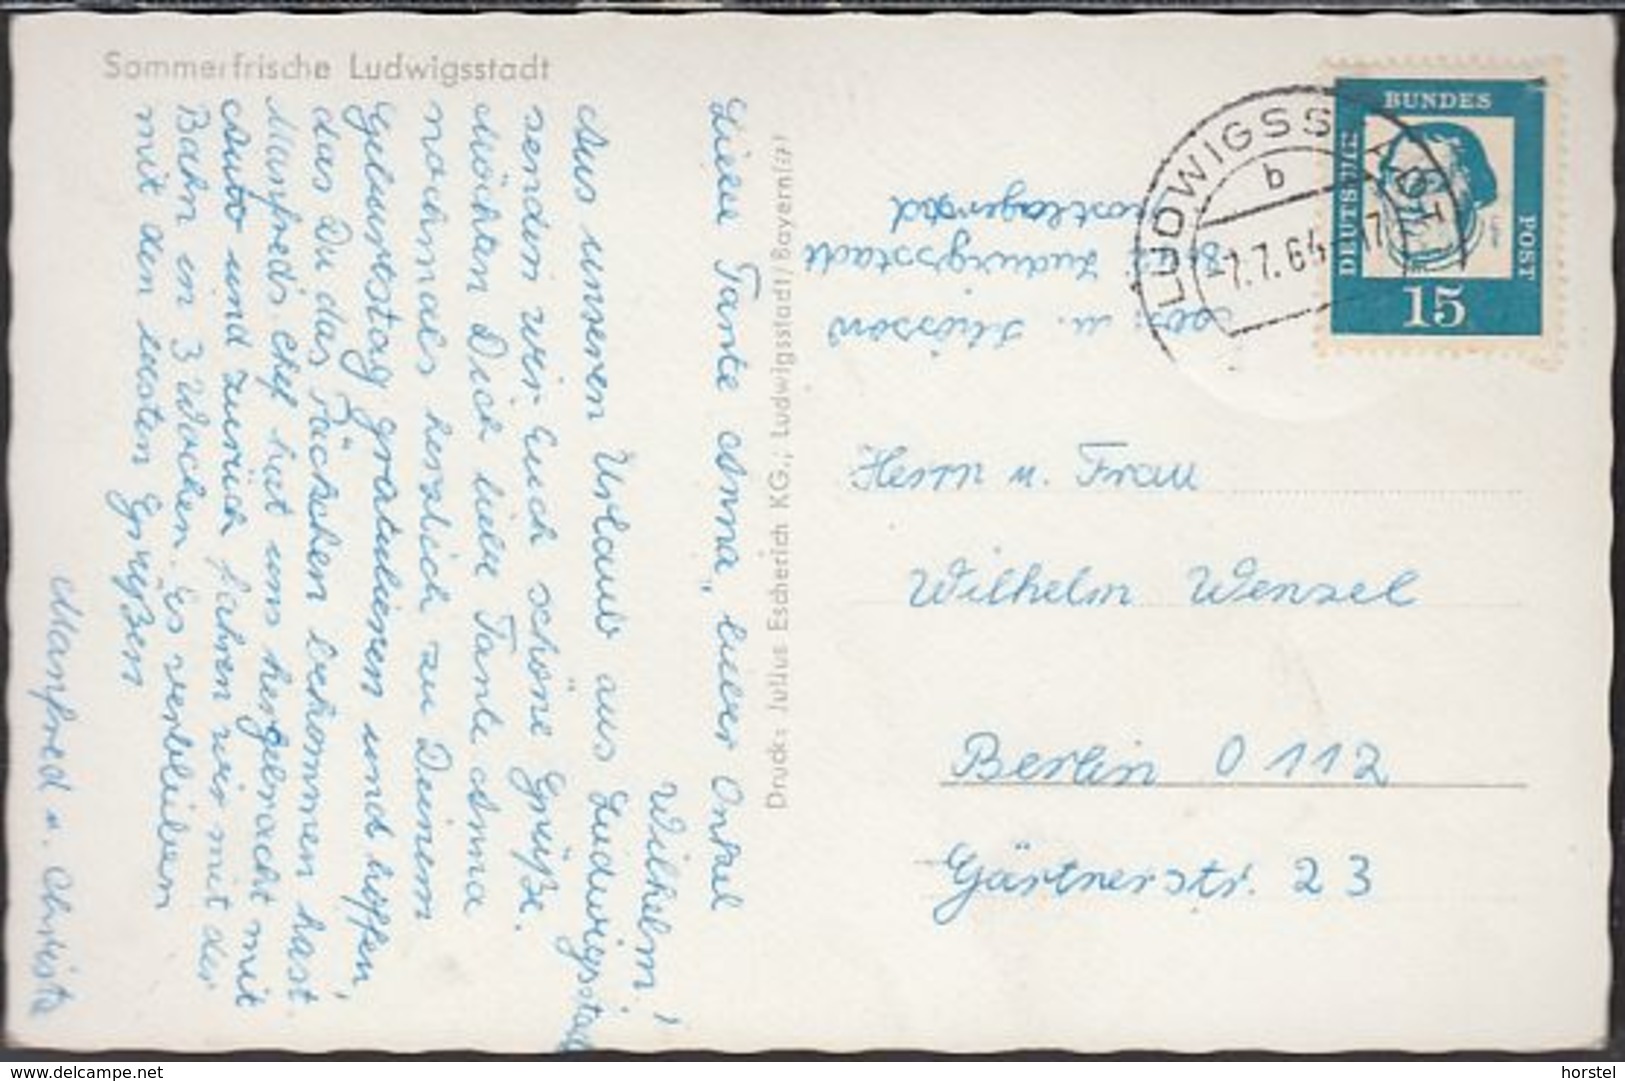 Sommerfrische Ludwigsstadt
Liebe Tante Anna, lieber Onkel
Wilhelm!
Aus unseren Urlaub aus Ludwigsstadt
senden wir Euch schöne Grüße.
Möchten Dich liebe Tante Anna
nochmals herzlich zu Deinem
Geburtstag gratulieren und hoffen,
das Du das Päckchen bekommen hast.
Manfred's Chef hat uns hergebracht mit
Auto und zurück fahren wir mit der
Bahn in 3 Wochen. Es verbleiben
mit den besten Grüßen
Manfred u. Christa
Druck: Julius Escherich KG., Ludwigsstadt/Bayern
u.
Ludwigsstadt
postlagernd
LUDWIGSSTADT
b
-7.7.64-17
DEUTSCHE
BUNDES
POST
15
Herrn u. Frau
Wilhelm Wensel
Berlin O 112
Gärtnerstr. 23
www.delcampe.net
horstel